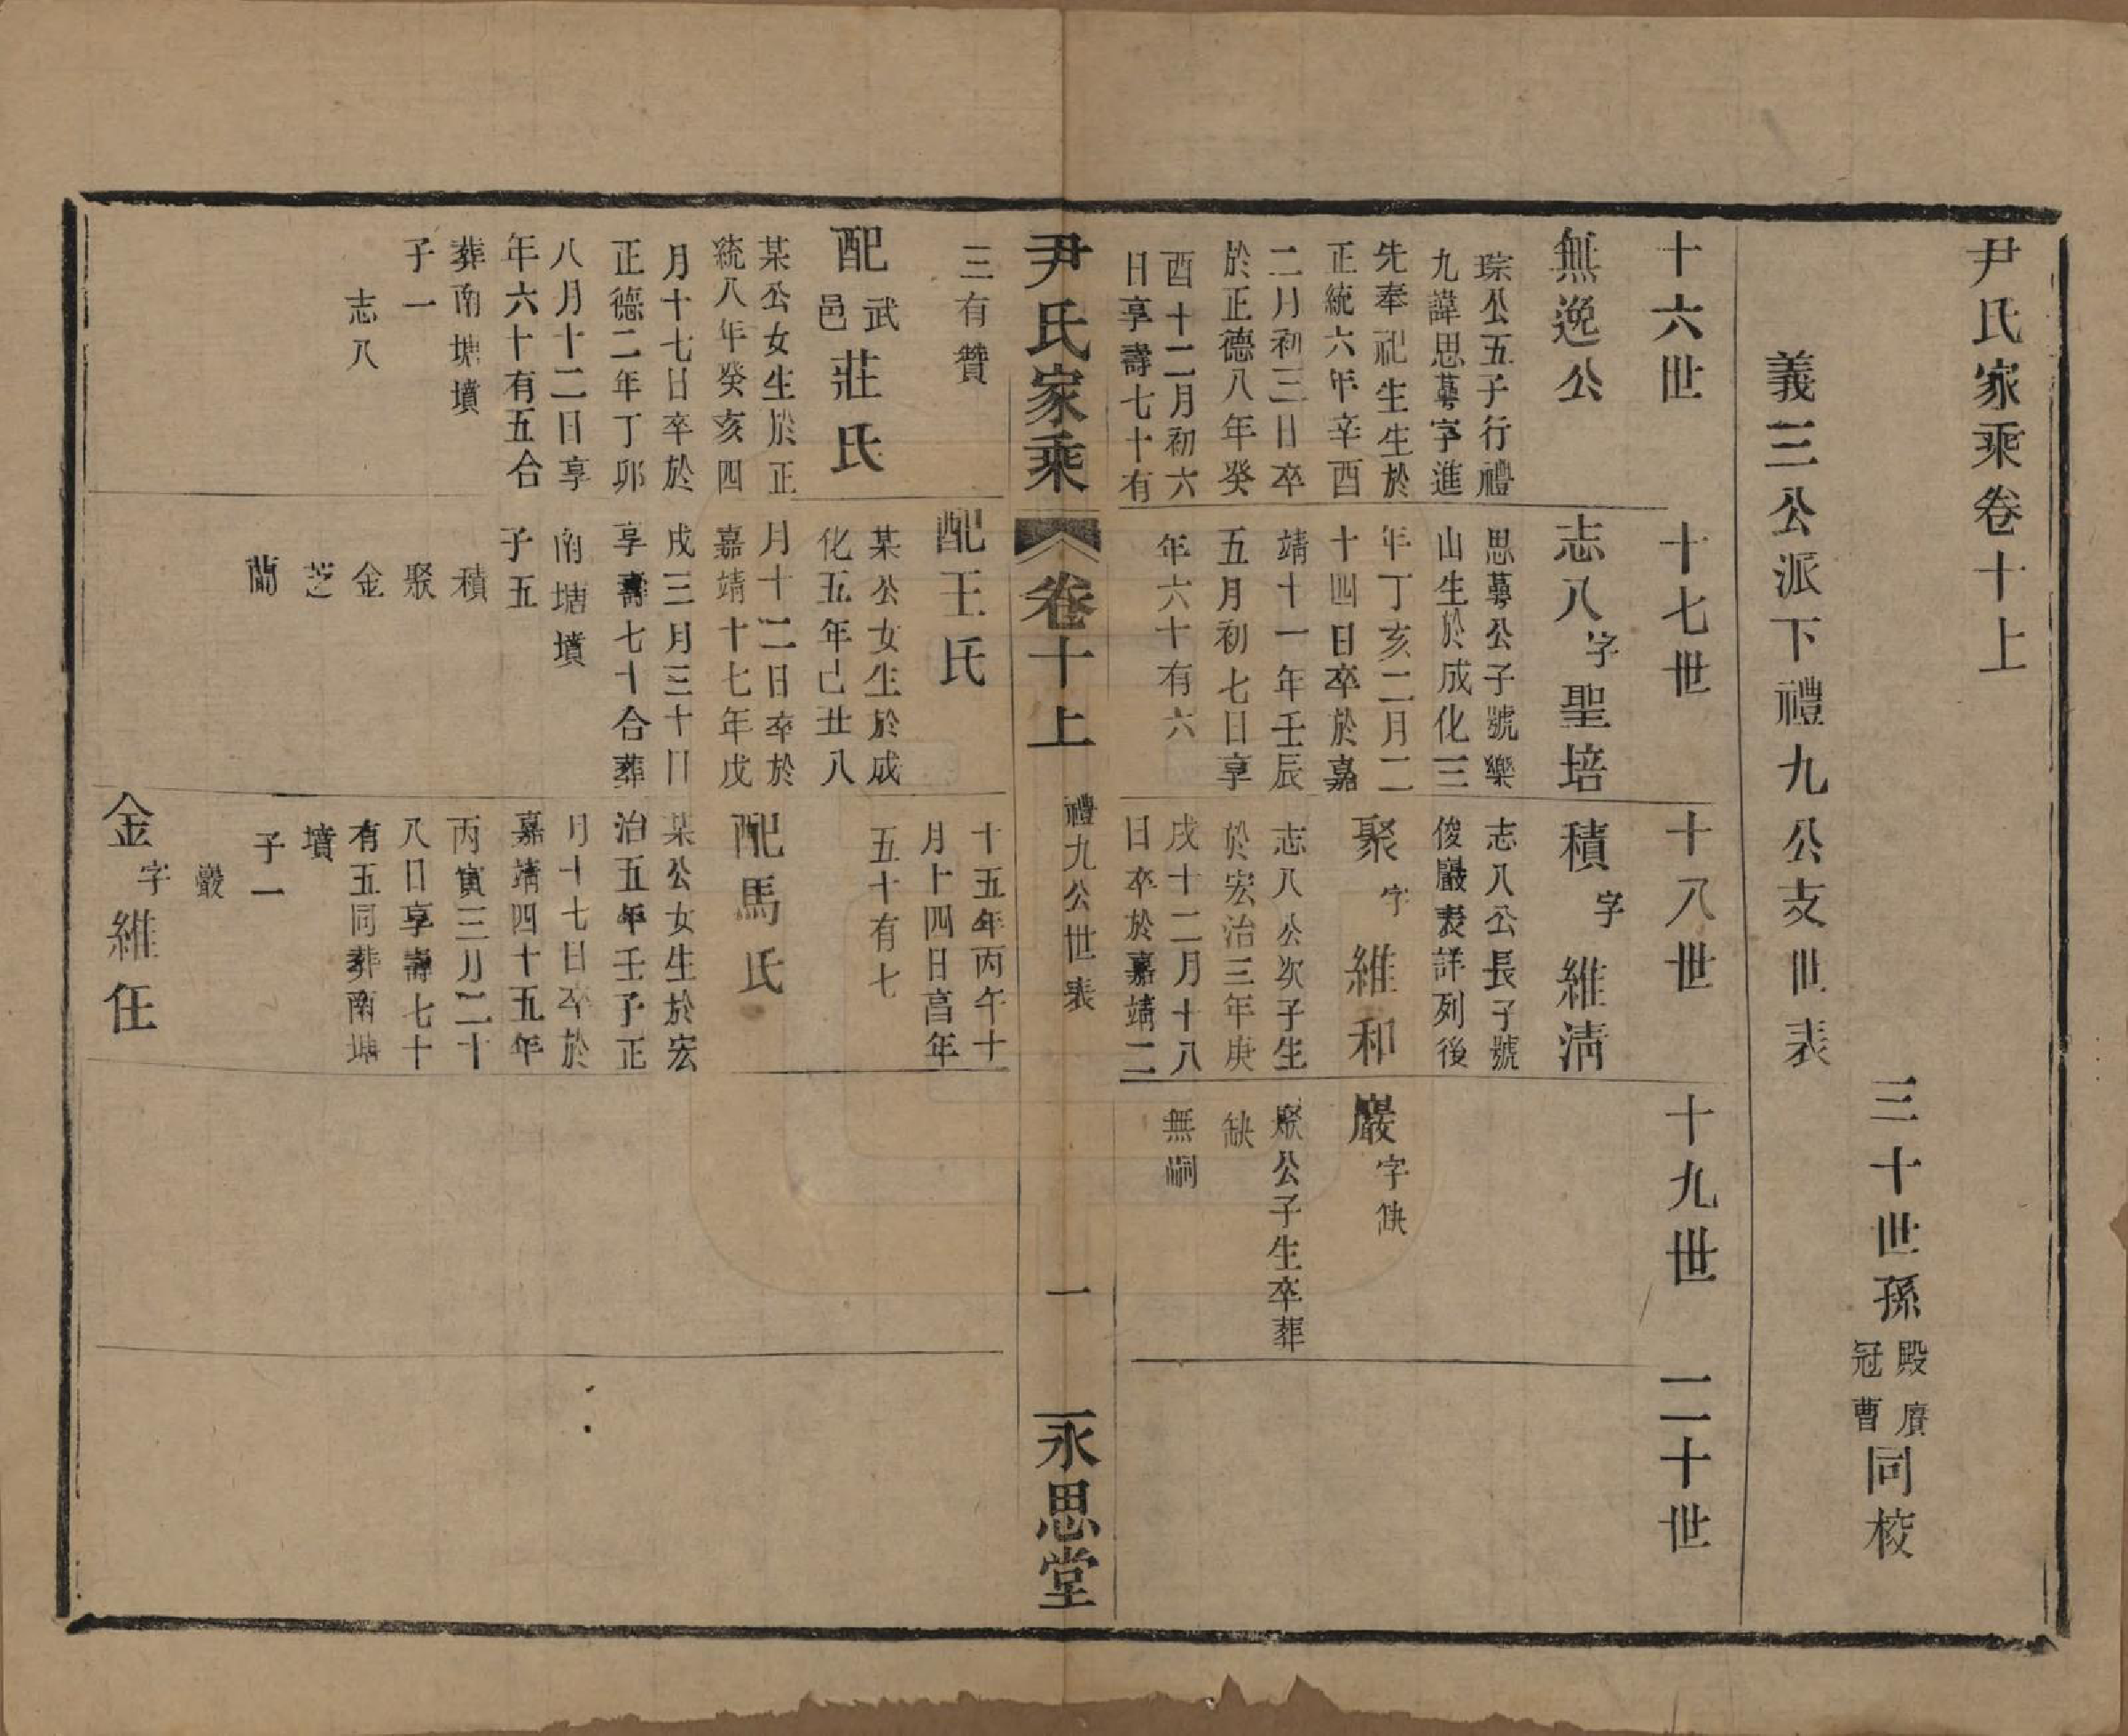 尹氏家乘卷十上
三十世孫殿賡冠曹同校
義三公派下禮九公支世表
十六世
十七世
十八世
十九世
二十世
無逸公
琮公五子行禮
九諱思蓦字進
先奉祀生生於
正統六年辛酉
二月初三日卒
於正德八年癸
酉十二月初六
日享壽七十有
三有贊
配武邑莊氏
某公女生於正
統八年癸亥四
月十七日卒於
正德二年丁卯
八月十二日享
年六十有五合
葬南塘墳
子一
志八
志八字聖培
思蓦公子號樂
山生於成化三
年丁亥二月二
十四日卒於嘉
靖十一年壬辰
五月初七日享
年六十有六
配王氏
某公女生於成
化五年己丑八
月十二日卒於
嘉靖十七年戊
戌三月三十日
享壽七十合葬
南塘墳
子五
積
聚
金
芝
蘭
積字維清
志八公長子號
俊巖表詳列後
聚字維和
志八公次子生
於宏治三年庚
戌十二月十八
日卒於嘉靖二
十五年丙午十
月十四日享年
五十有七
配馬氏
某公女生於宏
治五年壬子正
月十七日卒於
嘉靖四十五年
丙寅三月二十
八日享壽七十
有五同葬南塘
墳
子一
巖
金字維任
巖字缺
聚公子生卒葬
缺
無嗣
尹氏家乘
卷十上
禮九公世表
一
永思堂